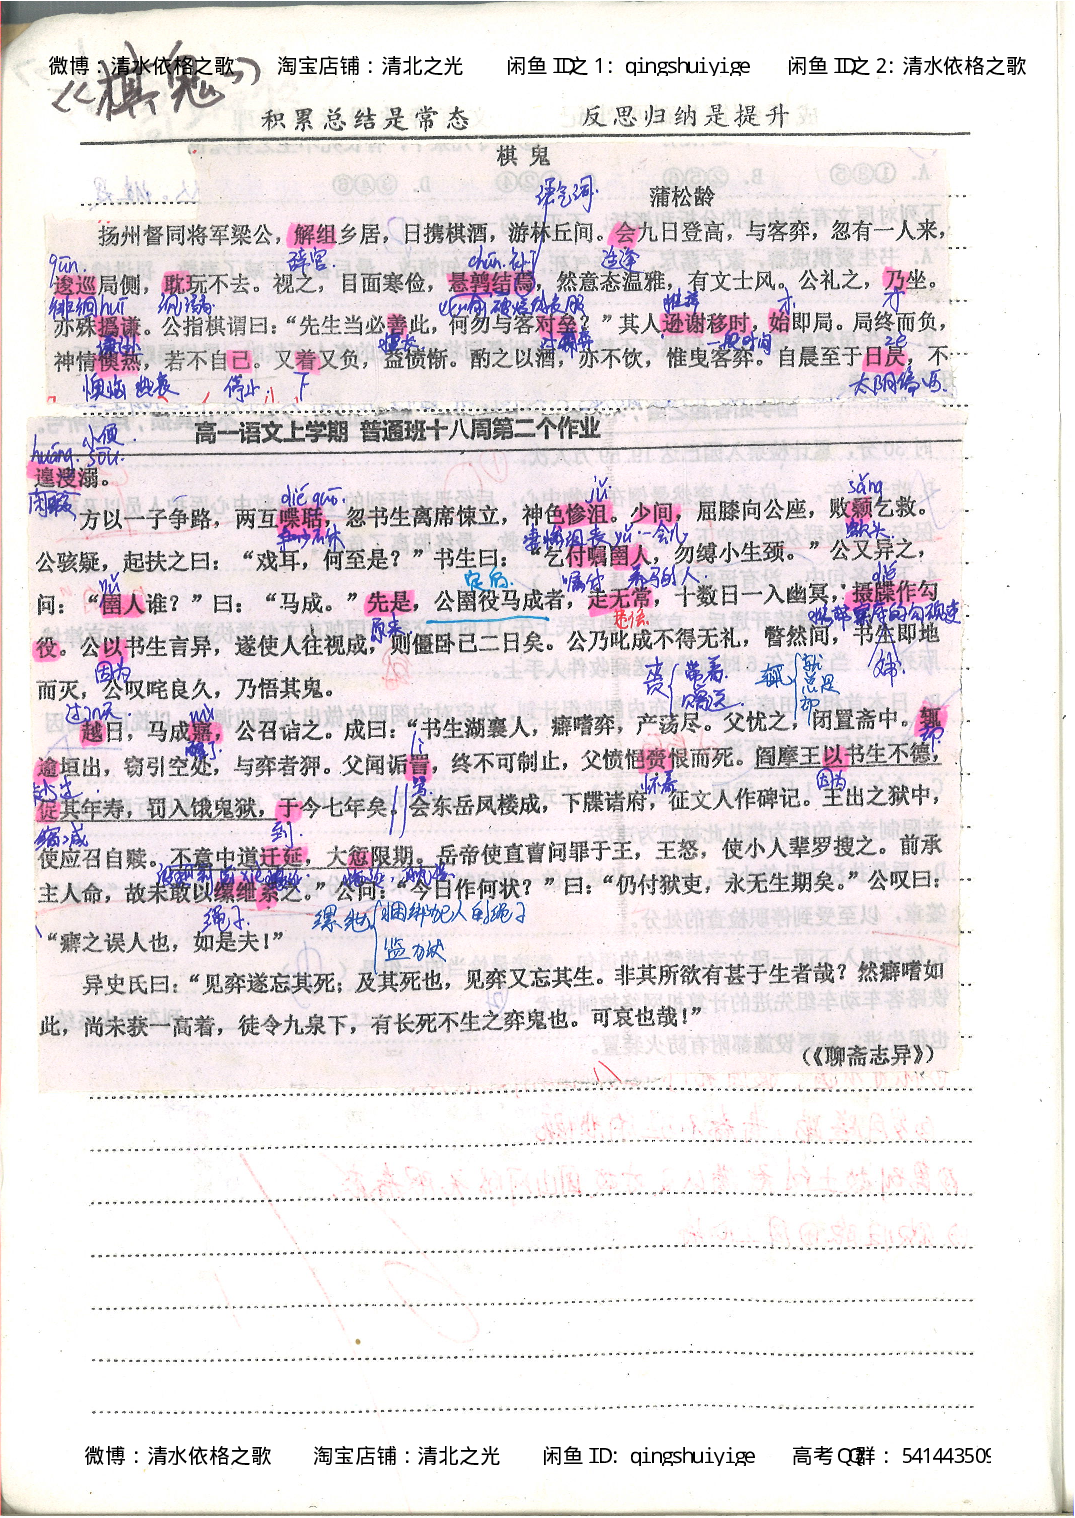 微博：清水依格之歌 淘宝店铺：清北之光 闲鱼 ID之 1: qingshuiyige 闲鱼 ID之 2: 清水依格之歌
《棋鬼》
积累总结是常态 反思归纳是提升
棋 鬼
语气词
蒲松龄
扬州督同将军梁公，解组乡居，日携棋酒，游林丘间。会九日登高，与客弈，忽有一人来，
qūn. 辞官 chún. 适逢
逡巡局侧，耽玩不去。视之，目面寒俭，悬鹑结焉，然意态温雅，有文士风。公礼之，乃坐。
徘徊 huī 才 才
亦殊㧑谦。公指棋谓曰：“先生当必善此，何勿与客对垒？”其人逊谢移时，始即局。局终而负，
谦逊 擅长 一段时间 zè
神情懊热，若不自已。又着又负，益愤惭。酌之以酒，亦不饮，惟曳客弈。自晨至于日昃，不
懊恼 沮丧 停止 下 太阳偏西.
高一语文上学期 普通班十八周第二个作业
huáng. 小便 sōu.
遑溲溺。
闲暇 dié guō. jǔ sǎng
方以一子争路，两互喋聒，忽书生离席悚立，神色惨沮。少间，屈膝向公座，败颡乞救。
争吵不休 凄惨沮丧 yǔ 一会儿 额头
公骇疑，起扶之曰：“戏耳，何至是？”书生曰：“乞付嘱圉人，勿缚小生颈。”公又异之，
yǔ 官府. 嘱付 养马的人. dié
问：“圉人谁？”曰：“马成。”先是，公圉役马成者，走无常，十数日一入幽冥，摄牒作勾
原来
役。公以书生言异，遂使人往视成，则僵卧已二日矣。公乃叱成不得无礼，瞥然间，书生即地
因为 赍 带着 辄 就 总是 即
而灭，公叹咤良久，乃悟其鬼。
过几天 mèi
越日，马成寤，公召诘之。成曰：“书生湖襄人，癖嗜弈，产荡尽。父忧之，闭置斋中。辄
醒了
逾垣出，窃引空处，与弈者狎。父闻诟詈，终不可制止，父愤悒赍恨而死。阎摩王以书生不德，
越过 骂 怀着 因为
促其年寿，罚入饿鬼狱，于今七年矣。会东岳凤楼成，下牒诸府，征文人作碑记。王出之狱中，
缩减 到
使应召自赎。不意中道迁延，大愆限期。岳帝使直曹问罪于王，王怒，使小人辈罗搜之。前承
主人命，故未敢以缧绁系之。”公问：“今日作何状？”曰：“仍付狱吏，永无生期矣。”公叹曰：
绳子. 缧绁 捆绑犯人的绳子 监狱
“癖之误人也，如是夫！”
异史氏曰：“见弈遂忘其死；及其死也，见弈又忘其生。非其所欲有甚于生者哉？然癖嗜如
此，尚未获一高着，徒令九泉下，有长死不生之弈鬼也。可哀也哉！”
（《聊斋志异》）
微博：清水依格之歌 淘宝店铺：清北之光 闲鱼 ID: qingshuiyige 高考QQ群：541443509